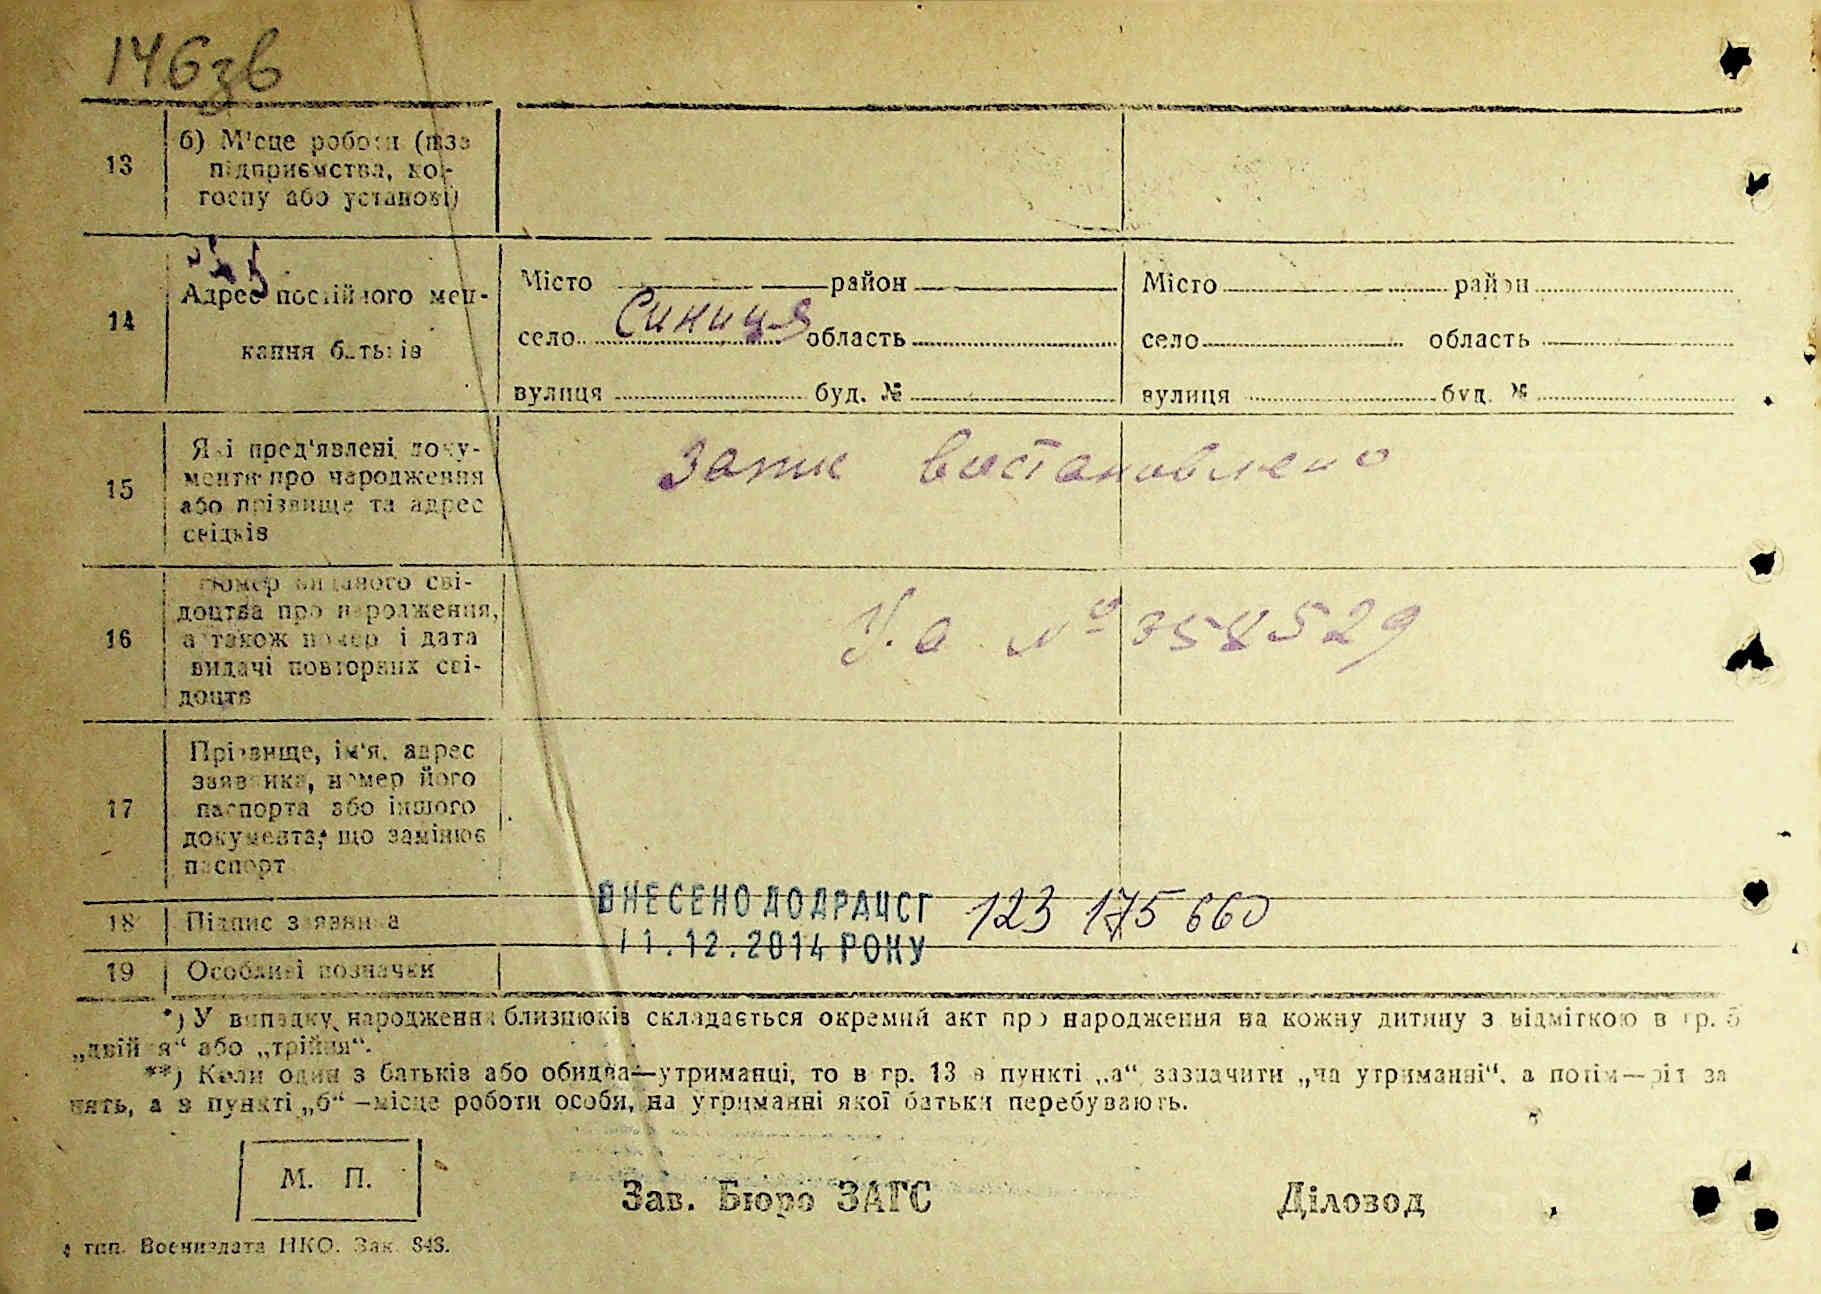 146зв
13
б) Місце роботи (назв
підприємства, кол-
госпу або установи)
14
Адрес постійного меш-
кання батьків
Місто район
село Синиця область
вулиця буд. №
Місто район
село область
вулиця буд. №
15
Які пред'явлені доку-
менти про народження
або прізвище та адрес
свідків
Запис востановлено
16
Номер виданого сві-
доцтва про народження,
а також номер і дата
видачі повторних сві-
доцтв
№ 358529
17
Прізвище, ім'я, адрес
заявника, номер його
паспорта або іншого
документа, що замінює
паспорт
18
Підпис заявника
ВНЕСЕНО ДО ДРАЦСГ 123 175 660
11.12.2014 РОКУ
19
Особливі позначки
*) У випадку народження близнюків складається окремий акт про народження на кожну дитину з відміткою в гр. 5
„двійня“ або „трійня“.
**) Коли один з батьків або обидва—утриманці, то в гр. 13 в пункті „а“ зазначити „на утриманні“, а потім—рід за
нять, а в пункті „б“—місце роботи особи, на утриманні якої батьки перебувають.
М. П.
Зав. Бюро ЗАГС
Діловод
тип. Воениздата НКО. Зак. 848.